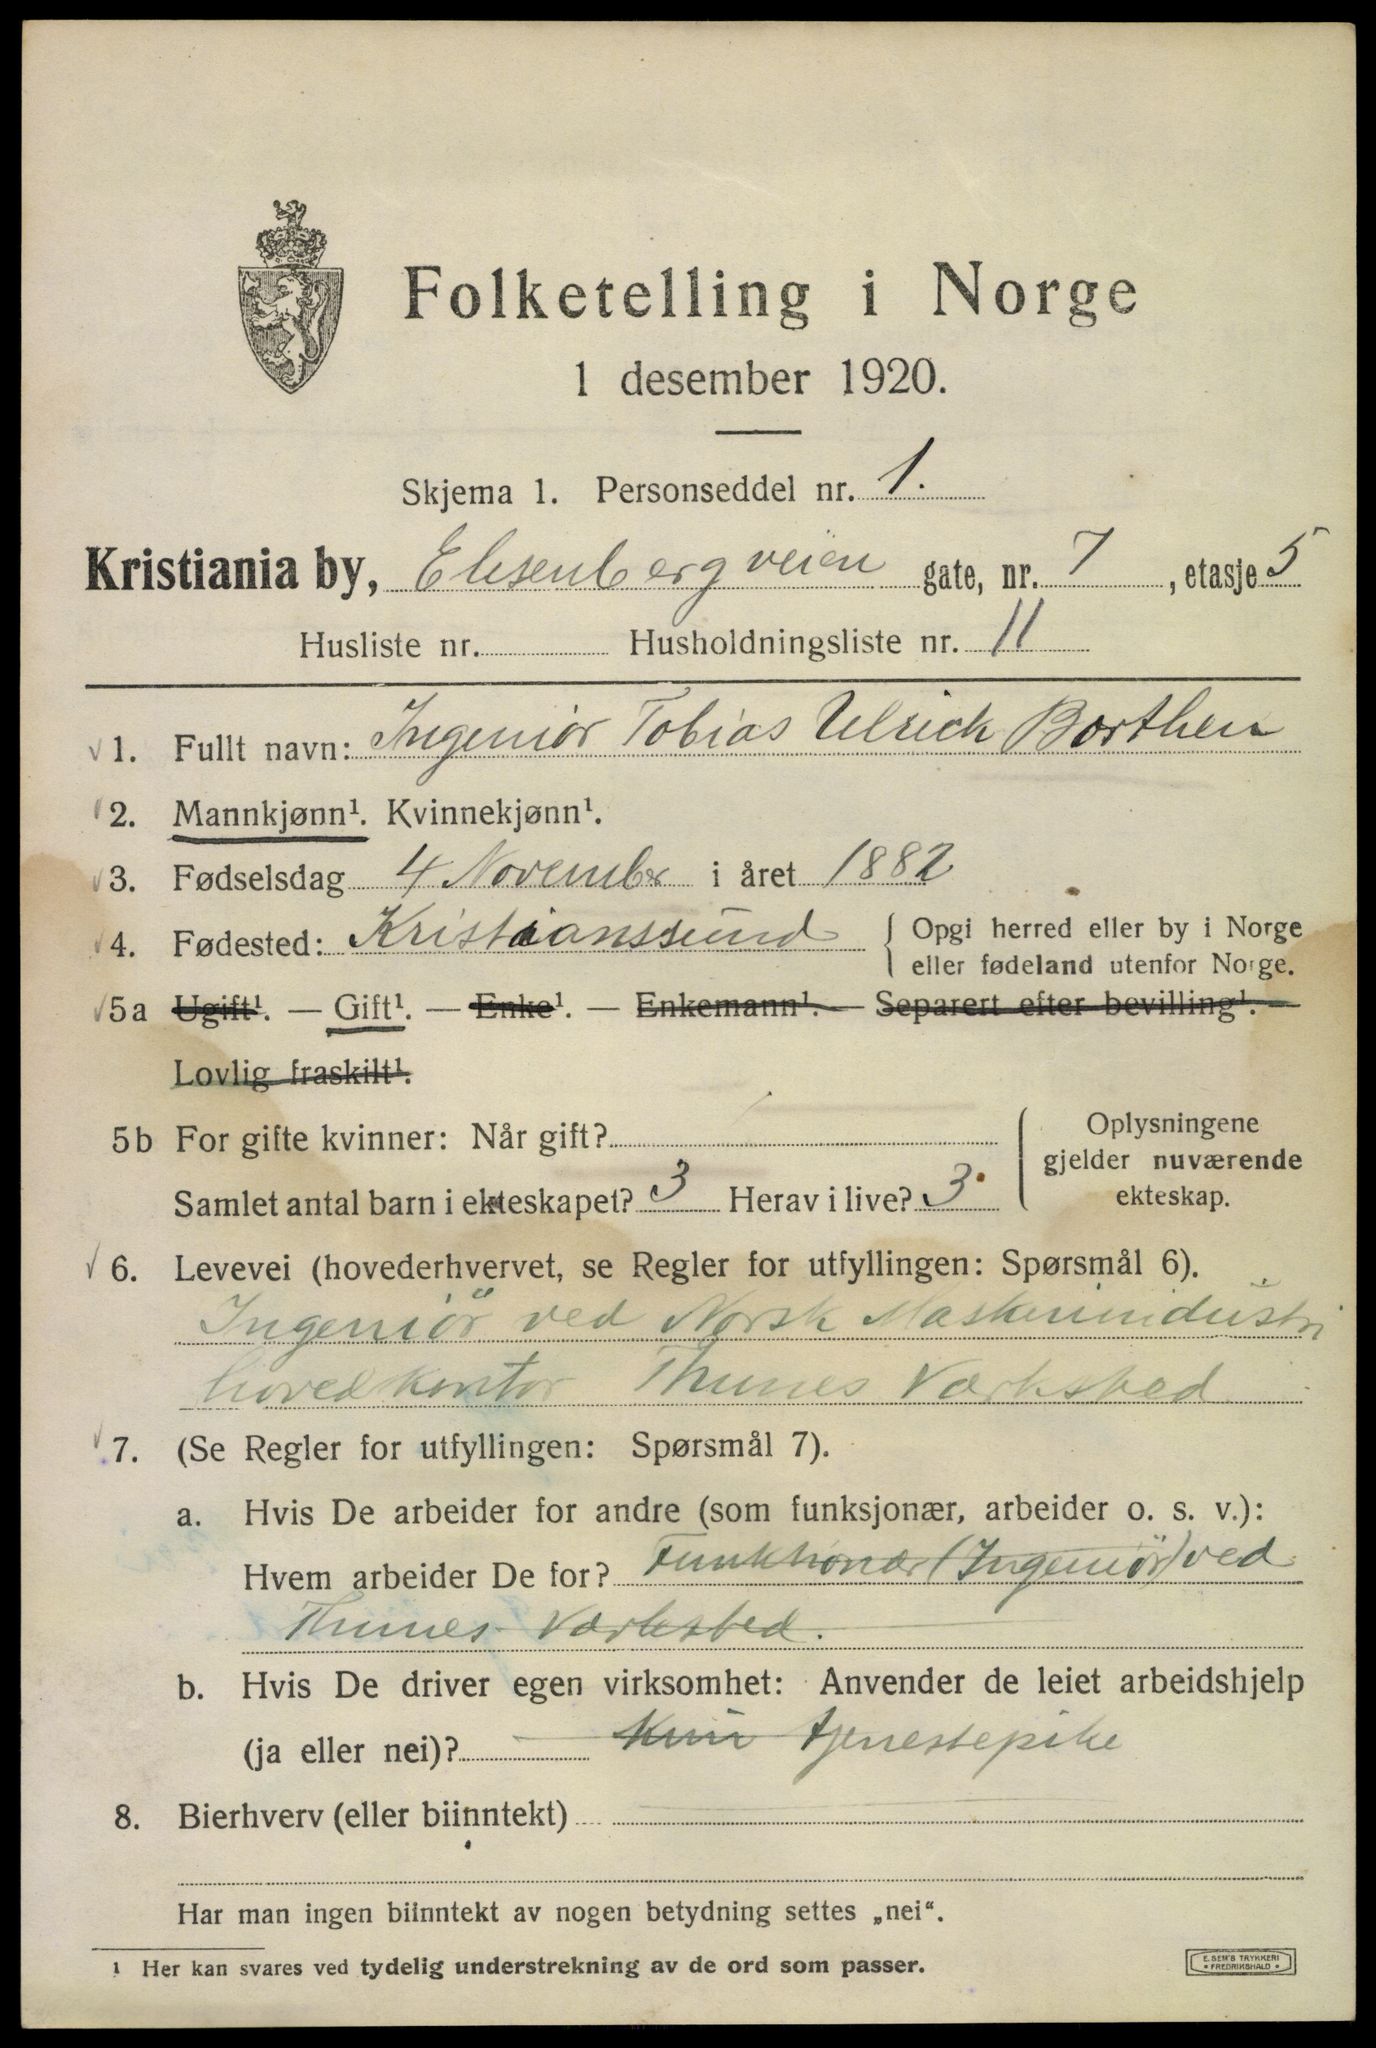 Folketelling i Norge
1 desember 1920.
Skjema 1. Personseddel nr. 1.
Kristiania by, Elisenbergveien gate, nr. 7, etasje 5
Husliste nr. Husholdningsliste nr. 11
1. Fullt navn: Ingeniør Tobias Ulrick Borthen
2. Mannkjønn¹. Kvinnekjønn¹.
3. Fødselsdag 4 November i året 1882
4. Fødested: Kristianssund { Opgi herred eller by i Norge
eller fødeland utenfor Norge.
5a Ugift¹. — Gift¹. — Enke¹. — Enkemann¹. — Separert efter bevilling¹. —
Lovlig fraskilt¹.
5b For gifte kvinner: Når gift? { Oplysningene
gjelder nuværende
Samlet antal barn i ekteskapet? 3 Herav i live? 3 ekteskap.
6. Levevei (hovederhvervet, se Regler for utfyllingen: Spørsmål 6).
Ingeniör ved Norsk Maskinindustri
hovedkontor Thunes Værksted
7. (Se Regler for utfyllingen: Spørsmål 7).
a. Hvis De arbeider for andre (som funksjonær, arbeider o. s. v.):
Hvem arbeider De for? Funktionær (Ingeniör) ved
Thunes Værksted.
b. Hvis De driver egen virksomhet: Anvender de leiet arbeidshjelp
(ja eller nei)? — Kun tjenestepike
8. Bierhverv (eller biinntekt)
Har man ingen biinntekt av nogen betydning settes „nei“.
¹ Her kan svares ved tydelig understrekning av de ord som passer.
E. SEM'S TRYKKERI
• FREDRIKSHALD •